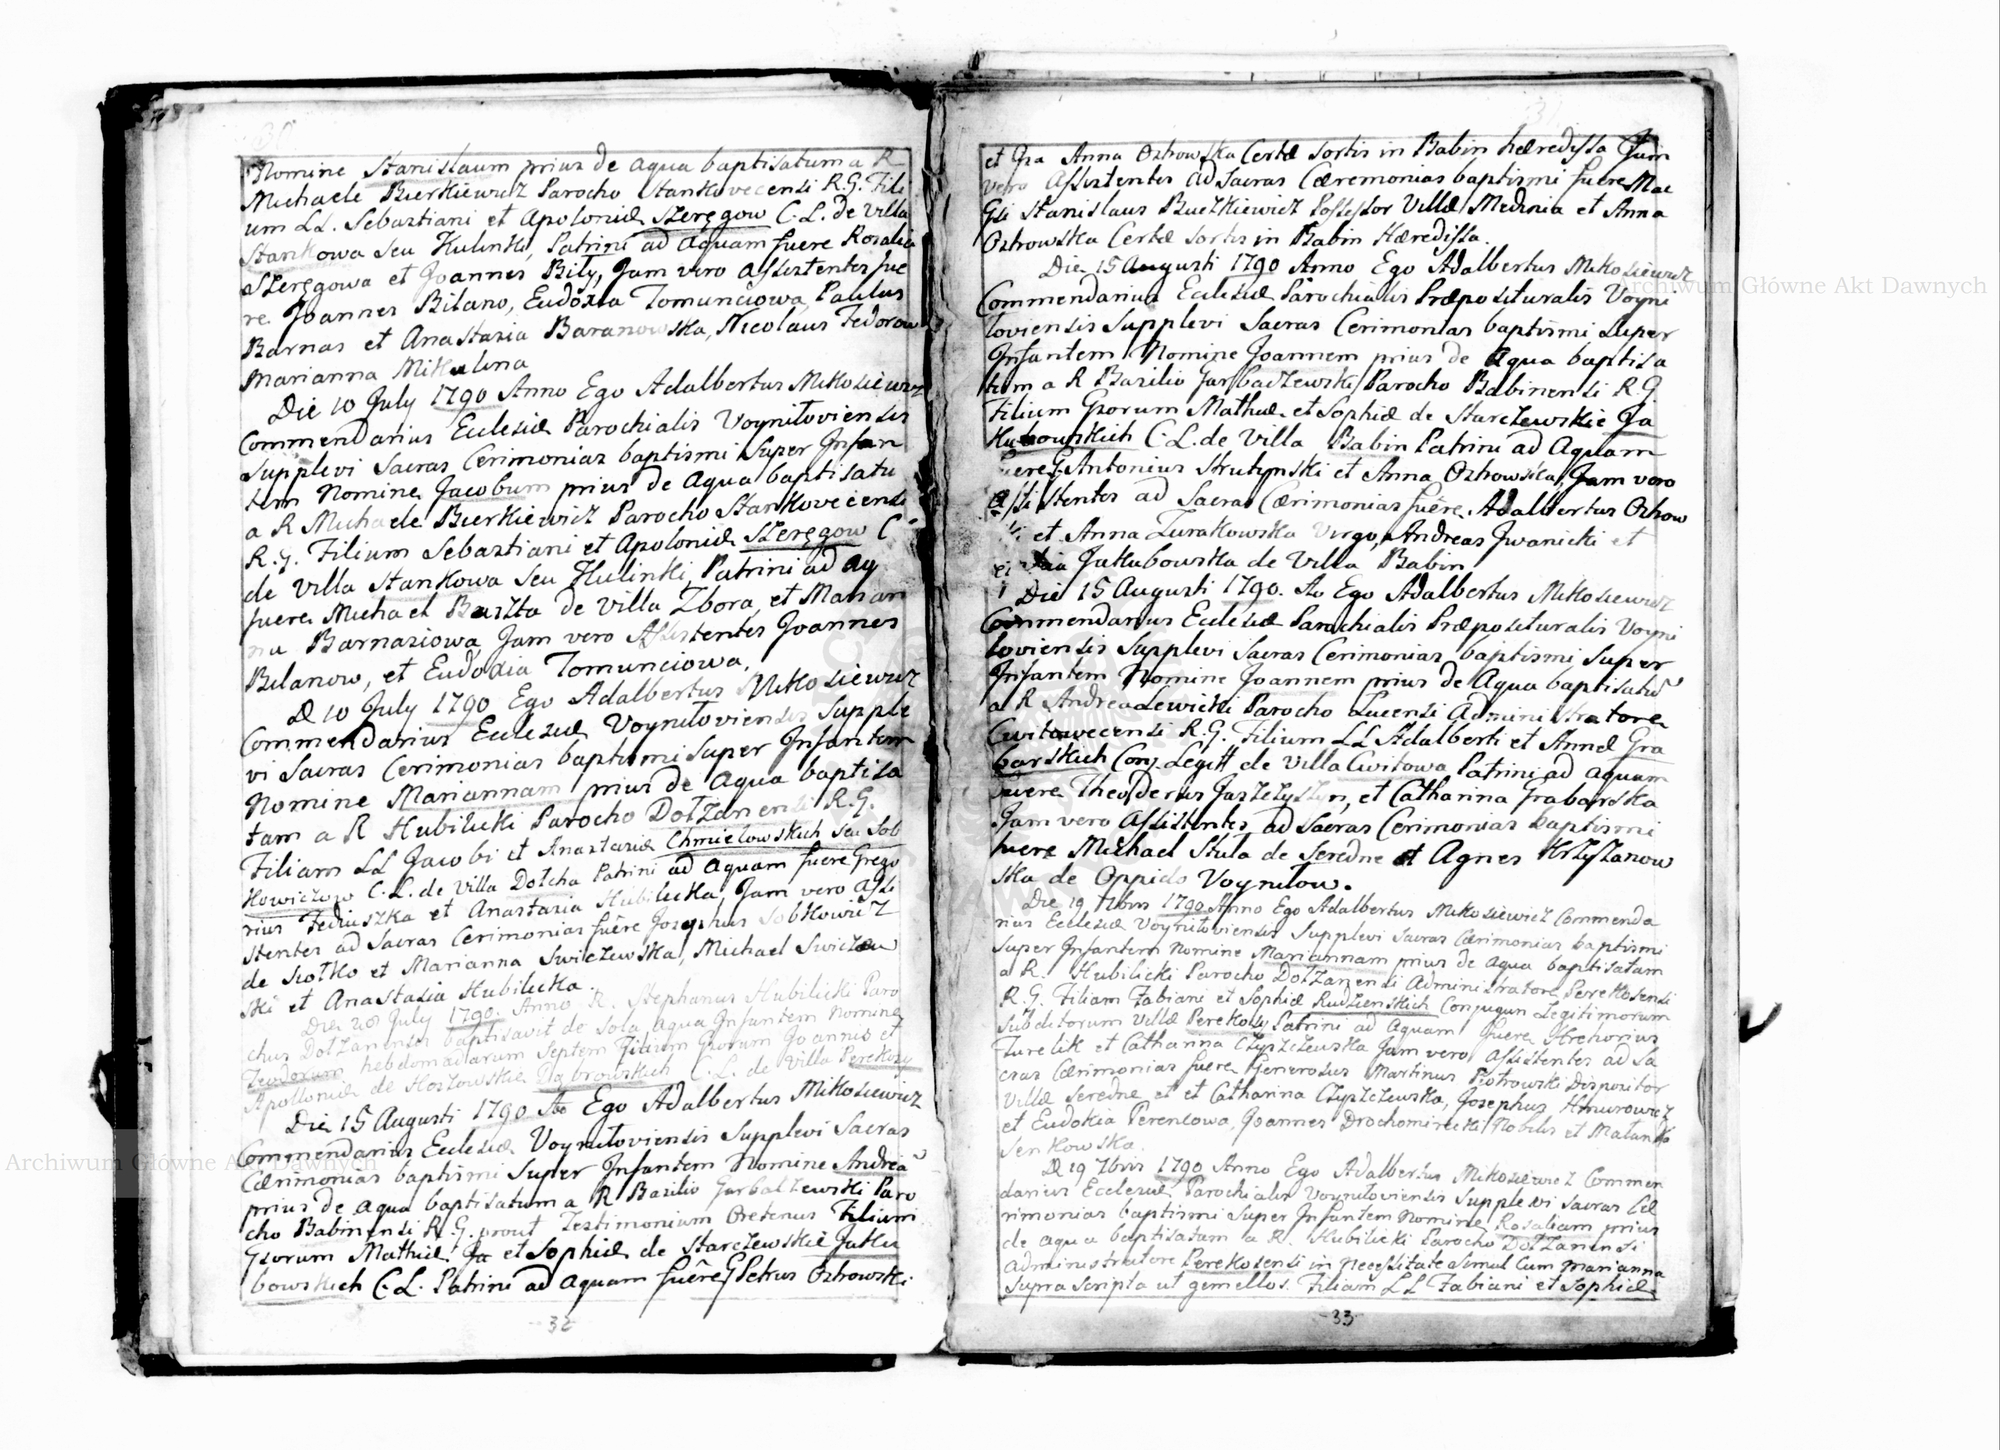 Nomine Stanislaum prius de aqua baptisatum a R
Michaele Bierkiewicz Parocho Stankovecensi R.G. Fili
um LL. Sebastiani et Apoloniæ Szeręgow C.L. de Villa
Stankowa seu Hulinki, Patrini ad Aquam fuere Rosalia
Szeręgowa et Joannes Bily, Jam vero Assistentes fue
re Joannes Bilano, Eudoxia Tomunciowa, Paulus
Barnas et Anastasia Baranowska, Nicolaus Fedorow
Marianna Mikulina
Die 10 July 1790 Anno Ego Adalbertus Mikosiewicz
Commendarius Ecclesiæ Parochialis Voyniloviensis
Supplevi Sacras Cerimonias baptismi Super Infan
tem Nomine Jacobum prius de Aqua baptisatu
a R Michaele Bierkiewicz Parocho Stankovecensi
R.G. Filium Sebastiani et Apoloniæ Szeręgow C
de Villa Stankowa seu Hulinki, Patrini ad Aq
fuere Michael Buszta de Villa Zbora, et Marian
na Barnasiowa Jam vero Assistentes Joannes
Bilanow, et Eudoxia Tomunciowa,
D 10 July 1790 Ego Adalbertus Mikosiewicz
Commendarius Ecclesiæ Voyniloviensis Supple
vi Sacras Cerimonias baptismi Super Infantem
Nomine Mariannam prius de Aqua baptisa
tam a R Hubilicki Parocho Dołzanensi R.G.
Filiam LL Jacobi et Anastasiæ Chmielowskich seu Sob
kowiczow C.L. de Villa Dołcha Patrini ad Aquam fuere Grego
rius Fediuszka et Anastasia Hubilicka, Jam vero Assi
stentes ad Sacras Cerimonias fuere Josephus Sobkowicz
de Siołko et Marianna Swiczewska, Michael Swiczew
ski et Anastasia Hubilicka.
Die 28 July 1790. Anno R. Stephanus Hubilicki Paro
chus Dołzanensis baptisavit de sola aqua Infantem Nomine
Teodorum hebdomadarum Septem Filium Gsorum Joannis et
Apolloniæ de Kozłowskie Dąbrowskich C.L. de Villa Perekosy
Die 15 Augusti 1790 Ao Ego Adalbertus Mikosiewicz
Commendarius Ecclesiæ Voyniloviensis Supplevi Sacras
Cærimonias baptismi Super Infantem Nomine Andreā
prius de Aqua baptisatum a R Basilio Garbaczewski Paro
cho Babinensi R.G. prout Testimonium Filium
Gsorum Mathiæ Ja et Sophiæ de Starczewskie Jaku
bowskich C.L. Patrini ad Aquam fuere G Petrus Ostrowski
32
et Gsa Anna Ostrowska Certæ Sortis in Babin hæredissa Jam
vero Assistentes ad Sacras Cæremonias baptismi fuere Mac
Gsi Stanislaus Buczkiewicz Possessor Villæ Medinia et Anna
Ostrowska Certæ sortis in Babin Hæredissa.
Die 15 Augusti 1790 Anno Ego Adalbertus Mikosiewicz
Commendarius Ecclesiæ Parochialis Præposituralis Voyni
loviensis Supplevi Sacras Cerimonias baptismi super
Infantem Nomine Joannem prius de Aqua baptisa
tum a R Basilio Garbaczewski Parocho Babinensi R.G.
Filium Gsorum Mathiæ et Sophiæ de Starczewskie Ja
kubowskich C.L. de Villa Babin Patrini ad Aquam
fuere G. Antonius Strutynski et Anna Ostrowska, Jam vero
Assistentes ad Sacras Cærimonias fuere Adalbertus Ostrow
et Anna Zurakowska Virgo, Andreas Iwanicki et
Jakubowska de Villa Babin
Die 15 Augusti 1790. Ao Ego Adalbertus Mikosiewicz
Commendarius Ecclesiæ Parochialis Præposituralis Voyni
loviensis Supplevi Sacras Cerimonias baptismi Super
Infantem Nomine Joannem prius de Aqua baptisatū
a R Andrea Lewicki Parocho Lucensi Administratore
Cwitowecensi R.G. Filium LL Adalberti et Annæ Gra
barskich Conj. Legitt de Villa Cwitowa Patrini ad Aquam
fuere Theoderus et Catharina Grabarska
Jam vero Assistentes ad Sacras Cerimonias baptismi
fuere Michael Skula de Seredne et Agnes Krzyszanow
ska de Oppido Voynilow.
Die 19 7bris 1790 Anno Ego Adalbertus Mikosiewicz Commenda
rius Ecclesiæ Voyniloviensis Supplevi Sacras Cærimonias baptismi
Super Infantem Nomine Mariannam prius de Aqua baptisatam
a R. Hubilicki Parocho Dołzanensi Administratore Perekosensi
R.G. Filiam Fabiani et Sophiæ Rudzienskich Conjugum Legitimorum
Subditorum Villæ Perekosy Patrini ad Aquam fuere Hrehorius
Turelik et Catharina Czyszczewska Jam vero Assistentes ad Sa
cras Cærimonias fuere Generosus Martinus Piotrowski Dispositor
Villæ Seredne et et Catharina Czyszczewska, Josephus Hnurowicz
et Eudokia Perencowa, Joannes Drochomirecki Nobilis et
Senkowska.
D 19 7bris 1790 Anno Ego Adalbertus Mikosiewicz Commen
darius Ecclesiæ Parochialis Voyniloviensis Supplevi Sacras Cæ
rimonias baptismi Super Infantem Nomine Rosaliam prius
de Aqua baptisatam a R. Hubilicki Parocho Dołzanensi
Administratore Perekosensi in Necessitate Simul Cum Marianna
Supra scripta ut gemellos. Filiam LL Fabiani et Sophiæ
33
Archiwum Główne Akt Dawnych
Archiwum Główne Akt Dawnych